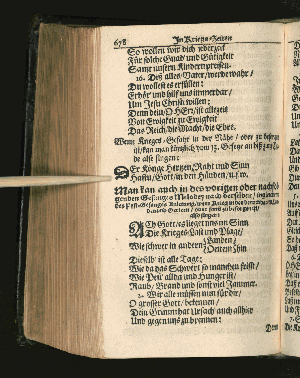 678 In Kriegs-Zeiten
So wollen wir dich jederzeit
Für solche Gnad und Gütigkeit
Samt unsern Kindern preisen.
16. Diß alles/ Vater/ werde wahr/
Du wollest es erfüllen:
Erhör und hilf uns immerdar/
Um Jesu Christi willen:
Denn dein/ O HErr/ ist allezeit
Von Ewigkeit zu Ewigkeit
Das Reich/ die Macht/ die Ehre.
Wenn Kriegs-Gefahr in der Nähe/ oder zu
ist/ kan man
de also singen:
DEr Könge Herzen/ Raht und Sinn
Hastu/ Gott/ in den Händen/ u.s.w.
Man kan auch in des vorigen oder nachfol-
genden Gesanges Melodey
also singen:
ACh Gott/ es liegt uns im Sinn
Die Krieges-Last und Plage/
Wie schwer in andern Landen
Dieselb' ist alle Tage:
Wie da das Schwert so manchen frisst/
Wie Pest allda und Hunger ist/
Raub/ Brand und sonst viel Jammer.
2. Wir alle müssen nun für dir/
O grosser Gott/ bekennen/
Dein Grimm hat Ursach auch allhier
Und gegen uns zu brennen:
Dem